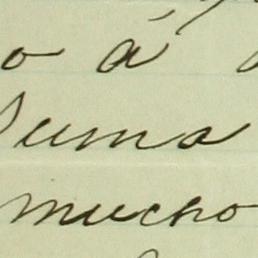 o á
suma
mucho